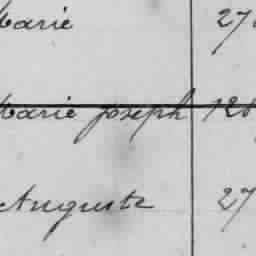 Marie 27
Marie Joseph 128
Auguste 27